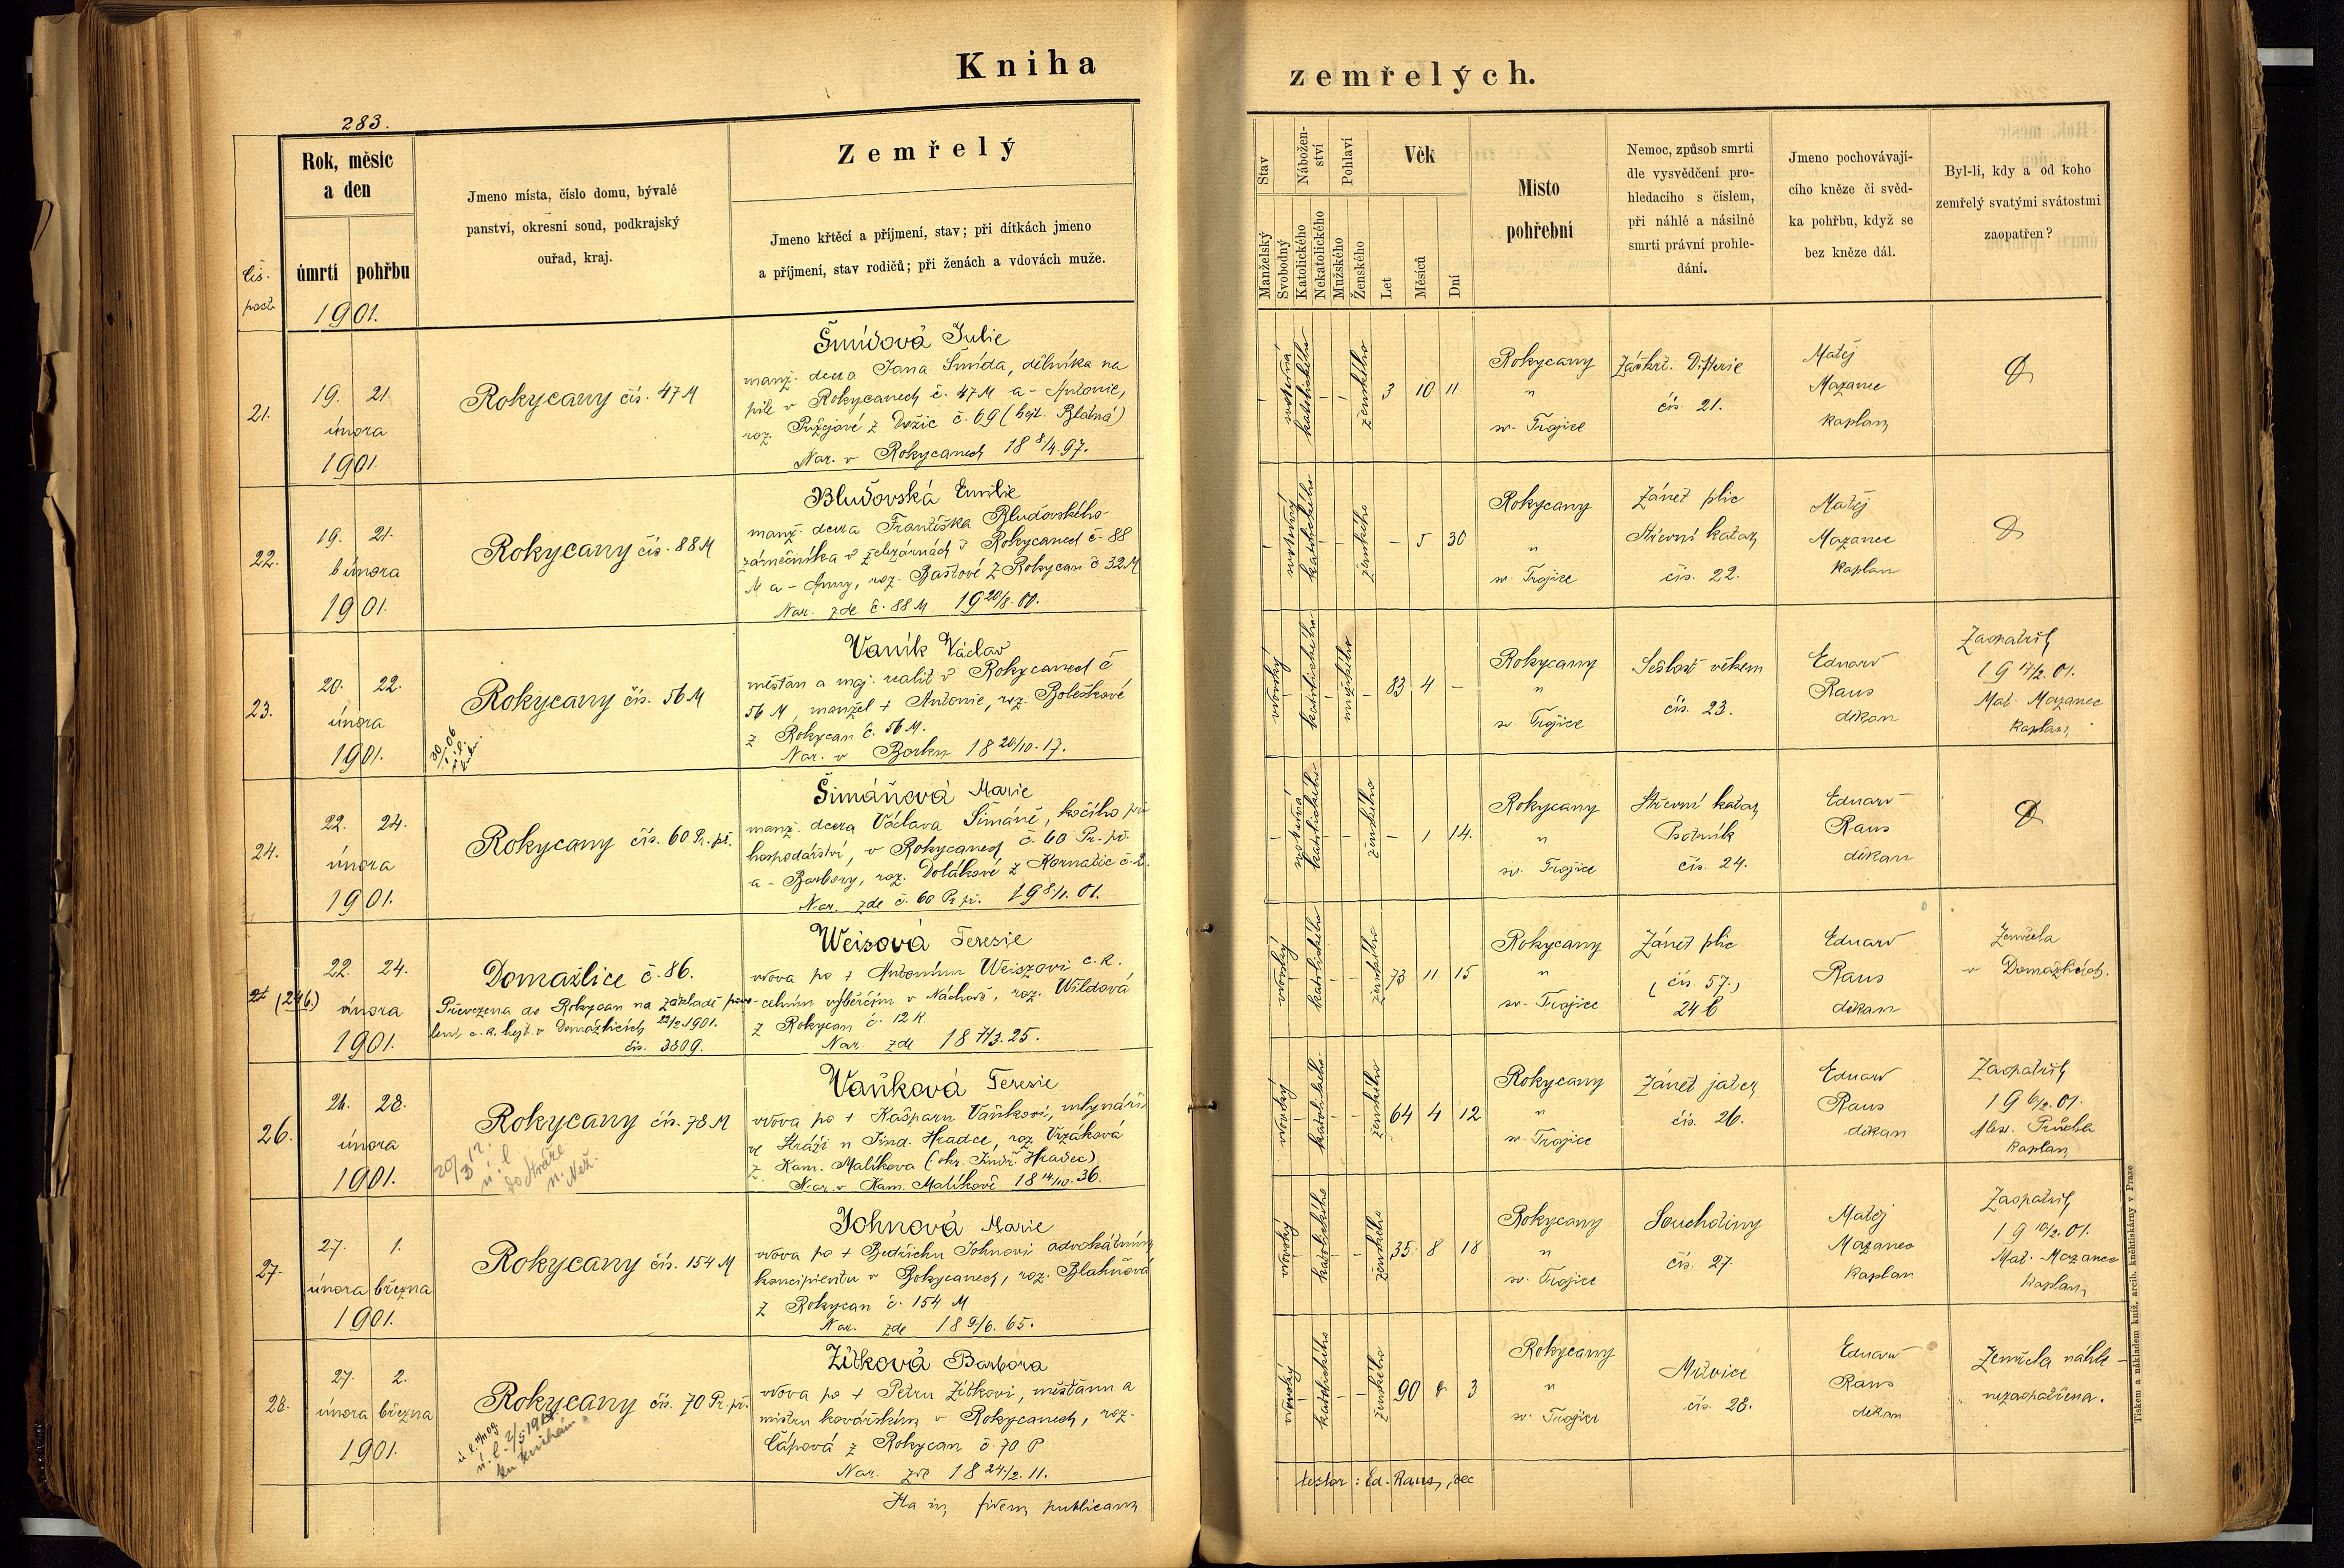 Kniha
zemřelých.
283.
čís.
post.
Rok, měsíc
a den
úmrtí pohřbu
1901.
Jmeno místa, číslo domu, bývalé
panství, okresní soud, podkrajský
ouřad, kraj.
Zemřelý
Jmeno křtěcí a příjmení, stav; při dítkách jmeno
a příjmení, stav rodičů; při ženách a vdovách muže.
Stav
Manželský
Svobodný
Nábožen-
ství
Katolického
Nekatolického
Pohlaví
Mužského
Ženského
Věk
Let
Měsíců
Dní
Místo
pohřební
Nemoc, způsob smrti
dle vysvědčení pro-
hledacího s číslem,
při náhlé a násilné
smrti právní prohle-
dání.
Jmeno pochovávají-
cího kněze či svěd-
ka pohřbu, když se
bez kněze dál.
Byl-li, kdy a od koho
zemřelý svatými svátostmi
zaopatřen?
21.
19. 21.
února
1901.
Rokycany čís. 47 M
Šmídová Julie
manž. dcera Jana Šmída, dělníka na
pile v Rokycanech č. 47 M a - Antonie,
roz. z č. 69 (hejt. Blatná)
Nar. v Rokycanech 18 8/4. 97.
svobodná
katolického
ženského
3 10 11
Rokycany
"
sv. Trojice
Záškrt. Difterie
čís. 21.
Matěj
Mazanec
kaplan
22.
19. 21.
února
1901.
Rokycany čís. 88 M
Bluďovská Emilie
manž. dcera Františka Bluďovského
zámečníka v železárnách v Rokycanech č. 88
M a - Anny, roz. Baštové z Rokycan č 32 M
Nar. zde č. 88 M 19 20/8. 00.
katolického
ženského
- 5 30
Rokycany
"
sv. Trojice
Zánět plic
Střevní katar
čís. 22.
Matěj
Mazanec
kaplan
23.
20. 22.
února
1901.
Rokycany čís. 56 M
Vaník Václav
měšťan a maj. realit v Rokycanech č
56 M, manžel + Antonie, roz. Boleškové
z Rokycan č. 56 M.
Nar. v Borku 18 20/10. 17.
vdovský
katolického
mužského
83 4 -
Rokycany
"
sv. Trojice
Sešlost věkem
čís. 23.
Eduard
Raus
děkan
Zaopatřil
19 17/2. 01.
Mat. Mazanec
kaplan
24.
22. 24.
února
1901.
Rokycany čís. 60 Pr. př.
Šimáňová Marie
manž. dcera Václava Šimáně, kočího při
hospodářství, v Rokycanech č. 60 Pr. př.
a - Barbory, roz. Dolákové z Kornatic č. 2.
Nar. zde č. 60 Pr. př. 19 8/1. 01.
svobodná
katolického
ženského
- 1 14.
Rokycany
"
sv. Trojice
Střevní katar
Psotník
čís. 24.
Eduard
Raus
děkan
(24b.)
22. 24.
února
1901.
Domažlice č. 86.
Převezena do Rokycan na základě povo-
lení c. k. hejt. v Domažlicích 22/2. 1901.
čís. 3809.
Weisová Teresie
vdova po + Antonínu Weiszovi c. k.
celním výběrčím v Náchodě, roz. Wildová
z Rokycan č. 12 K
Nar. zde 18 7/3. 25.
vdovský
katolického
ženského
73 11 15
Rokycany
"
sv. Trojice
Zánět plic
(čís 57.)
24 b
Eduard
Raus
děkan
Zemřela
v Domažlicích.
26.
26. 28.
února
1901.
Rokycany čís. 78 M
Vaňková Teresie
vdova po + Kašparu Vaňkovi, mlynáři
ve Hráži u Jind. Hradce, roz. Vrzáková
z Kam. Malíkova (okr. Jindř. Hradec)
Nar. v Kam. Malíkově 18 14/10. 36.
vdovský
katolického
ženského
64 4 12
Rokycany
"
sv. Trojice
Zánět jater
čís. 26.
Eduard
Raus
děkan
Zaopatřil
19 6/2. 01.
Alex. Průcha
kaplan
27.
27. 1.
února března
1901.
Rokycany čís. 154 M
Johnová Marie
vdova po + Bedřichu Johnovi advokátním
koncipientu v Rokycanech, roz. Blahňová
z Rokycan č. 154 M
Nar. zde 18 9/6. 65.
vdovský
katolického
ženského
35 8 18
Rokycany
"
sv. Trojice
Souchotiny
čís. 27.
Matěj
Mazanec
kaplan
Zaopatřil
19 10/2. 01.
Mat. Mazanec
kaplan
28.
27. 2.
února března
1901.
Rokycany čís. 70 Pr. př.
Žítková Barbora
vdova po + Petru Žítkovi, měšťanu a
mistru kovářském v Rokycanech, roz.
Čápová z Rokycan č. 70 P
Nar. zde 18 24/2. 11.
vdovský
katolického
ženského
90 - 3
Rokycany
"
sv. Trojice
Mrtvice
čís. 28.
Eduard
Raus
děkan
Zemřela náhle -
nezaopatřena.
Ita in fidem publicam
testor: Ed. Raus, dec
Tiskem a nákladem kníž. arcib. kněhtiskárny v Praze